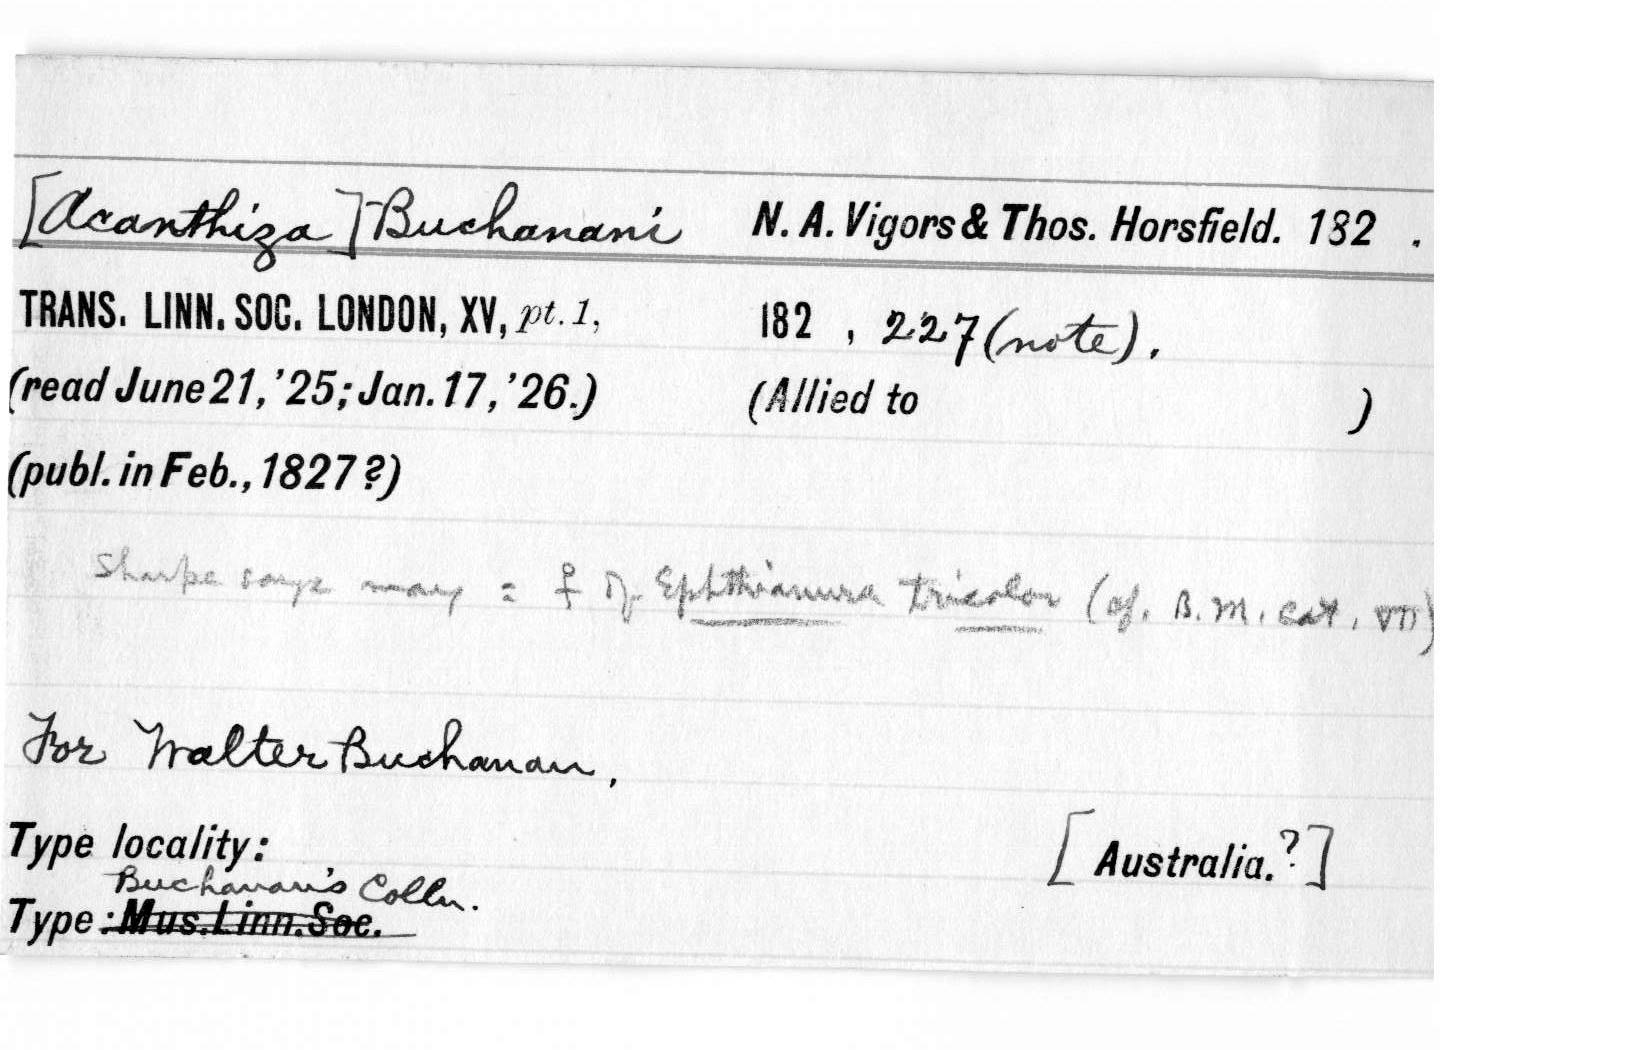 [Acanthiza] Buchanani N. A. Vigors & Thos. Horsfield. 182 .
TRANS. LINN. SOC. LONDON, XV, pt. 1, 182 , 227 (note).
(read June 21, '25; Jan. 17, '26.) (Allied to )
(publ. in Feb., 1827?)
Sharpe says may = ♀ of Ephthianura tricolor (cf. B. M. Cat. VII)
For Walter Buchanan.
Type locality: [Australia.?]
Buchanan's Colln.
Type: Mus. Linn. Soc.